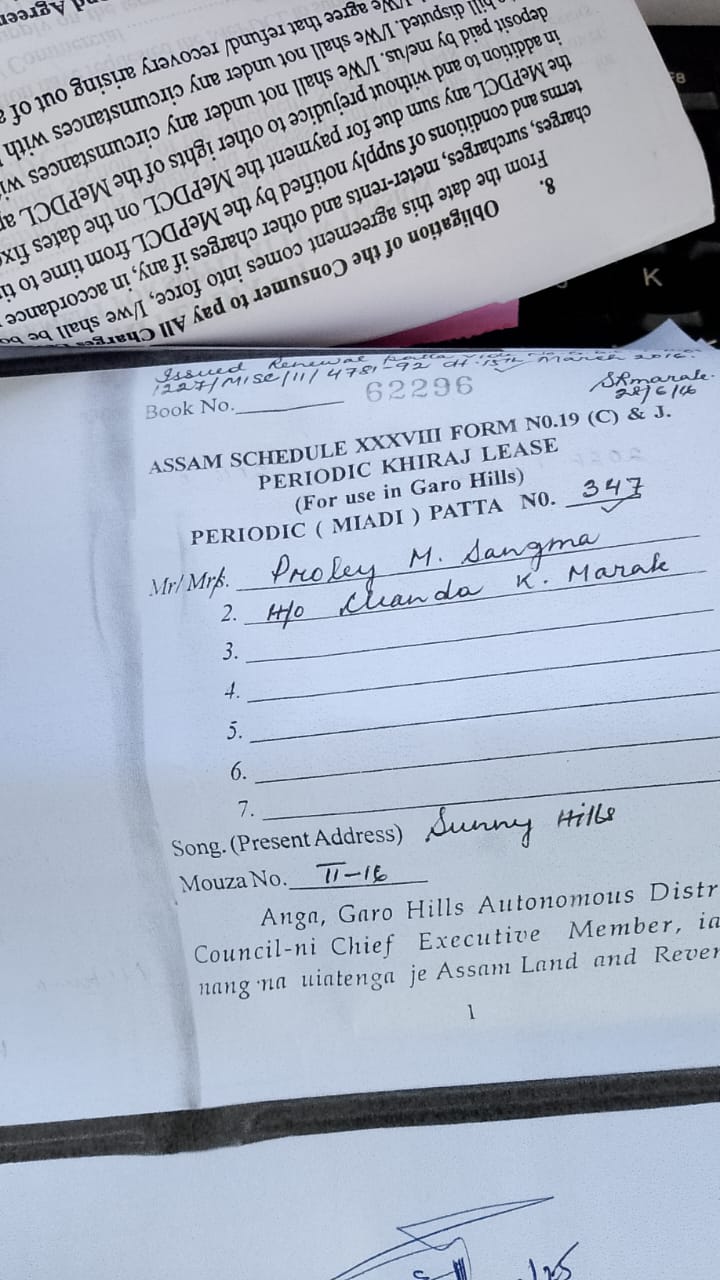 nd Agreem
I/We agree that refund/ recovery arising out of a
bill disputed. I/We shall not under any circumstances with
deposit paid by me/us. I/We shall not under any circumstances wi
in addition to and without prejudice to other rights of the MePDCL ap
the MePDCL any sum due for payment the MePDCL on the dates fix
terms and conditions of supply notified by the MePDCL from time to ti
charges, surcharges, meter-rents and other charges if any, in accordance
From the date this agreement comes into force, I/we shall be bo
8. Obligation of the Consumer to pay All Charges
Issued Renewal patta vide No
1227/Misc/11/4781-92 dt. 15th March 2016
Book No. 62296
SRmarak.
28/6/16
ASSAM SCHEDULE XXXVIII FORM N0.19 (C) & J.
PERIODIC KHIRAJ LEASE
(For use in Garo Hills)
PERIODIC ( MIADI ) PATTA N0. 347
Mr/Mrs. Proley M. Sangma
2. H/o Chanda K. Marak
3.
4.
5.
6.
7.
Song. (Present Address) Sunny Hills
Mouza No. II-16
Anga, Garo Hills Autonomous Distr
Council-ni Chief Executive Member, ia
nang·na uiatenga je Assam Land and Rever
1